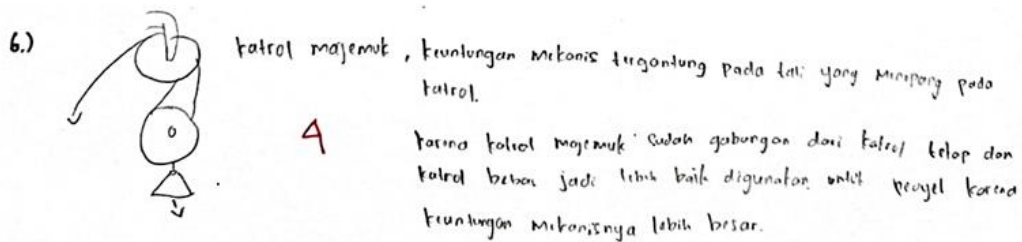 6.) katrol majemuk, keuntungan mekanis tergantung pada tali yang menopang pada
katrol.
4
karena katrol majemuk sudah gabungan dari katrol tetap dan
katrol bebas jadi lebih baik digunakan untuk proyel karena
keuntungan mekanisnya lebih besar.